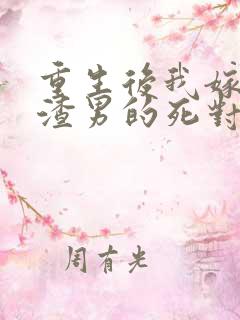 重生後我嫁
渣男的死對
周有光